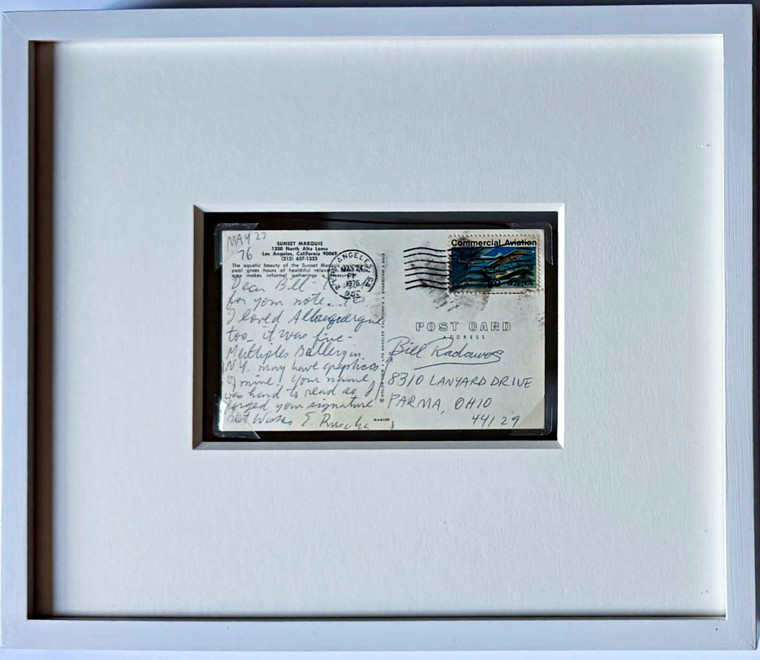 MAY 27
76
SUNSET MARQUIS
1200 North Alta Loma
Los Angeles, California 90069
(213) 657-1333
The equatic beauty of the Sunset Marquis
pool gives hours of healthful relax
area makes informal gatherings a
Dear Bill -
for your note...
I loved Albuquerque
too - it was fine -
Multiples Gallery in
N.Y. may have graphics
of mine! Your name
was hard to read so I
forged your signature
Best Wishes E. Ruscha
LOS ANGELES
1976
Commercial Aviation
1926 1976
POST CARD
ADDRESS
Bill Radawos
8310 LANYARD DRIVE
PARMA, OHIO
44129